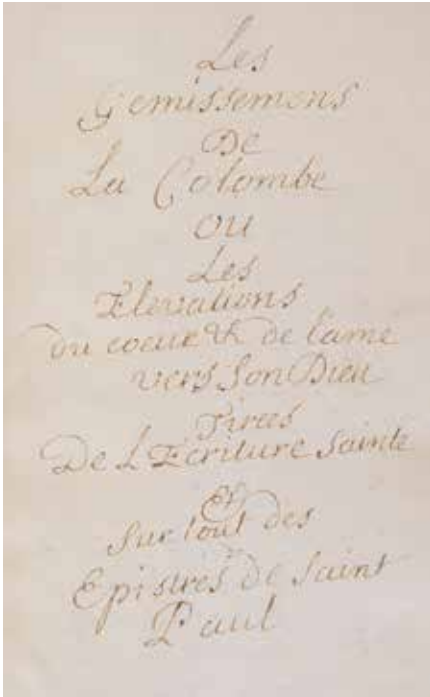 Les
Gemissemens
De
La Colombe
OU
Les
Elevations
du coeur & de l'ame
vers Son Dieu
Tirées
De L'Ecriture Sainte
et
Sur tout des
Epistres de Saint
Paul